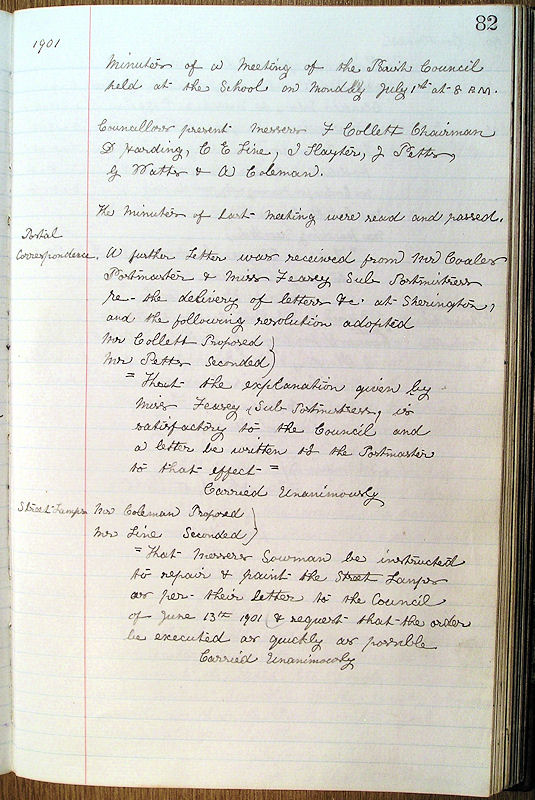 82
1901
Minutes of a Meeting of the Parish Council
held at the School on Monday July 1st at 8 P.M.
Councillors present Messrs F Collett Chairman
D Harding, C E Line, J Slayter, J Petts,
G Watts & A Coleman.
The Minutes of Last meeting were read and passed.
Postal
Correspondence. A further Letter was received from Mr Coales
Postmaster & Miss Feasey Sub Postmistress
re- the delivery of letters &c. at Sherington,
and the following resolution adopted
Mr Collett Proposed
Mr Petts Seconded
= That the explanation given by
Miss Feasey (Sub Postmistress, is
satisfactory to the Council and
a letter be written to the Postmaster
to that effect =
Carried Unanimously
Street Lamps Mr Coleman Proposed
Mr Line Seconded
= That Messrs Sowman be instructed
to repair & paint the Street Lamps
as per their letter to the Council
of June 13th 1901 (& request that the order
be executed as quickly as possible
Carried Unanimously